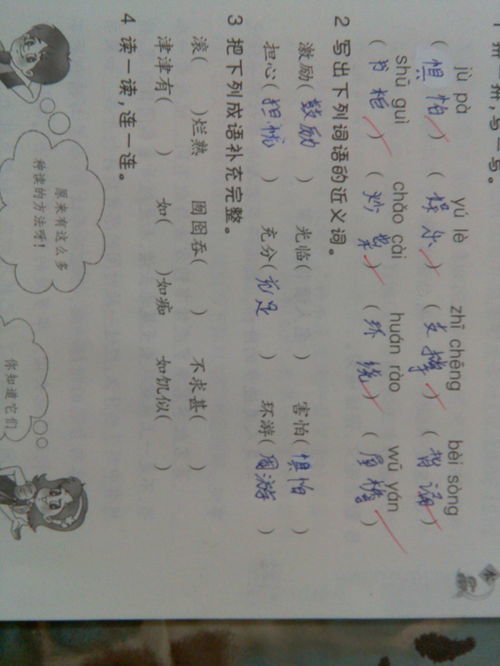 1 拼一拼,写一写。
jù pà yú lè zhī chēng bèi sòng
(惧怕) (娱乐) (支撑) (背诵)
shū guì chǎo cài huán rào wū yán
(书柜) (炒菜) (环绕) (屋檐)
2 写出下列词语的近义词。
激励(鼓励) 光临( ) 害怕(惧怕)
担心(担忧) 充分(充足) 环游(周游)
3 把下列成语补充完整。
滚( )烂熟 囫囵吞( ) 不求甚( )
津津有( ) 如( )如痴 如饥似( )
4 读一读,连一连。
原来有这么多
种读的方法呀!
你知道它们